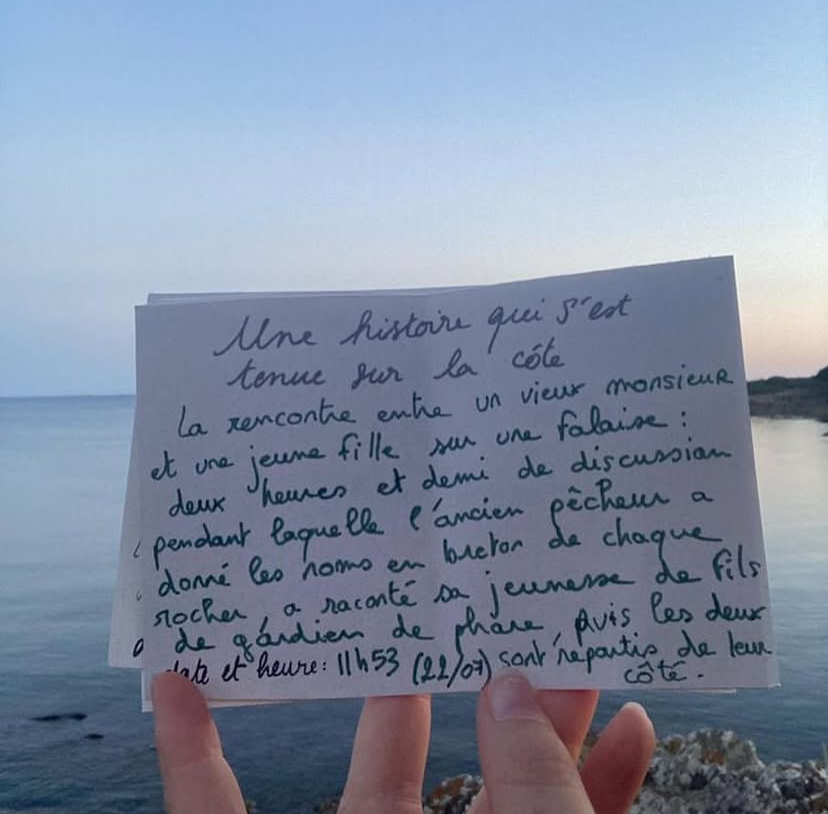 Une histoire qui s'est
tenue sur la côte
La rencontre entre un vieux monsieur
et une jeune fille sur une falaise :
deux heures et demi de discussion
pendant laquelle l'ancien pêcheur a
donné les noms en breton de chaque
rocher a raconté sa jeunesse de fils
de gardien de phare puis les deux
date et heure : 11h53 (22/07) sont repartis de leur
côté.